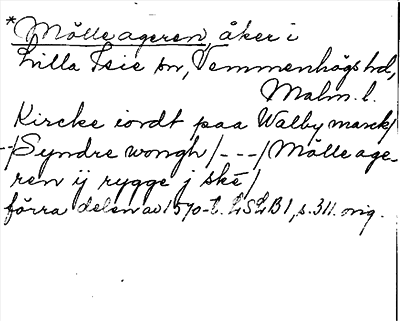 *Mölle ageren, åker i
Lilla Isie sn, Vemmenhögs hd,
Malm. l.
Kircke iordt paa Walby marck/
--/Syndre wongh/---/Mölle age-
ren ij rygge j skě/
förra delen av 1570-t. LSLB1, s. 311. orig.